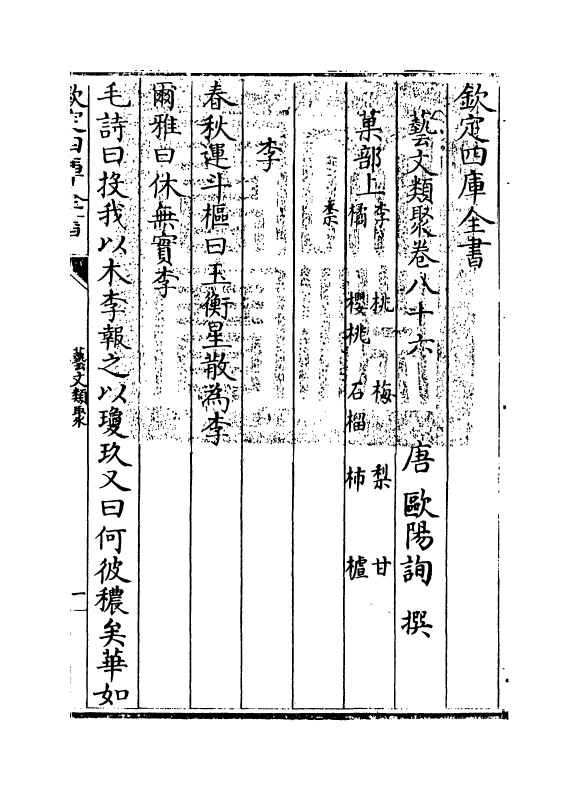 欽定四庫全書
藝文類聚卷八十六
唐 歐陽詢 撰
菓部上 李 桃 梅 梨 甘
橘 櫻桃 石榴 柿 樝
柰
李
春秋運斗樞曰玉衡星散為李
爾雅曰休無實李
毛詩曰投我以木李報之以瓊玖又曰何彼穠矣華如
藝文類聚
一